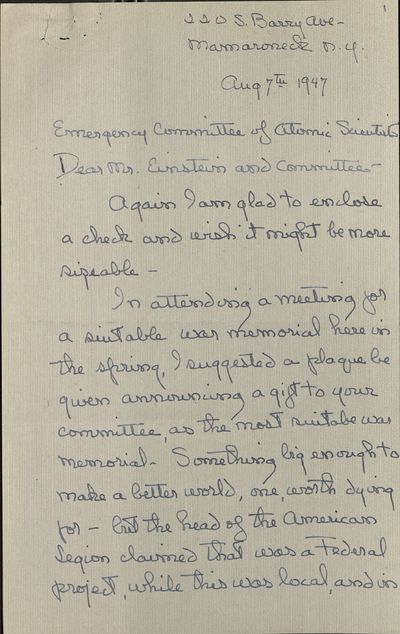 1
220 S. Barry Ave-
Mamaroneck N.Y.
Aug 7th 1947
Emergency Committee of Atomic Scientists
Dear Mr. Einstein and Committee-
Again I am glad to enclose
a check and wish it might be more
sizeable -
In attending a meeting for
a suitable war memorial here in
the spring, I suggested a plaque be
given announcing a gift to your
committee, as the most suitabe war
memorial- Something big enough to
make a better world, one, worth dying
for - but the head of the American
Legion claimed that was a Federal
project, while this was local, and in